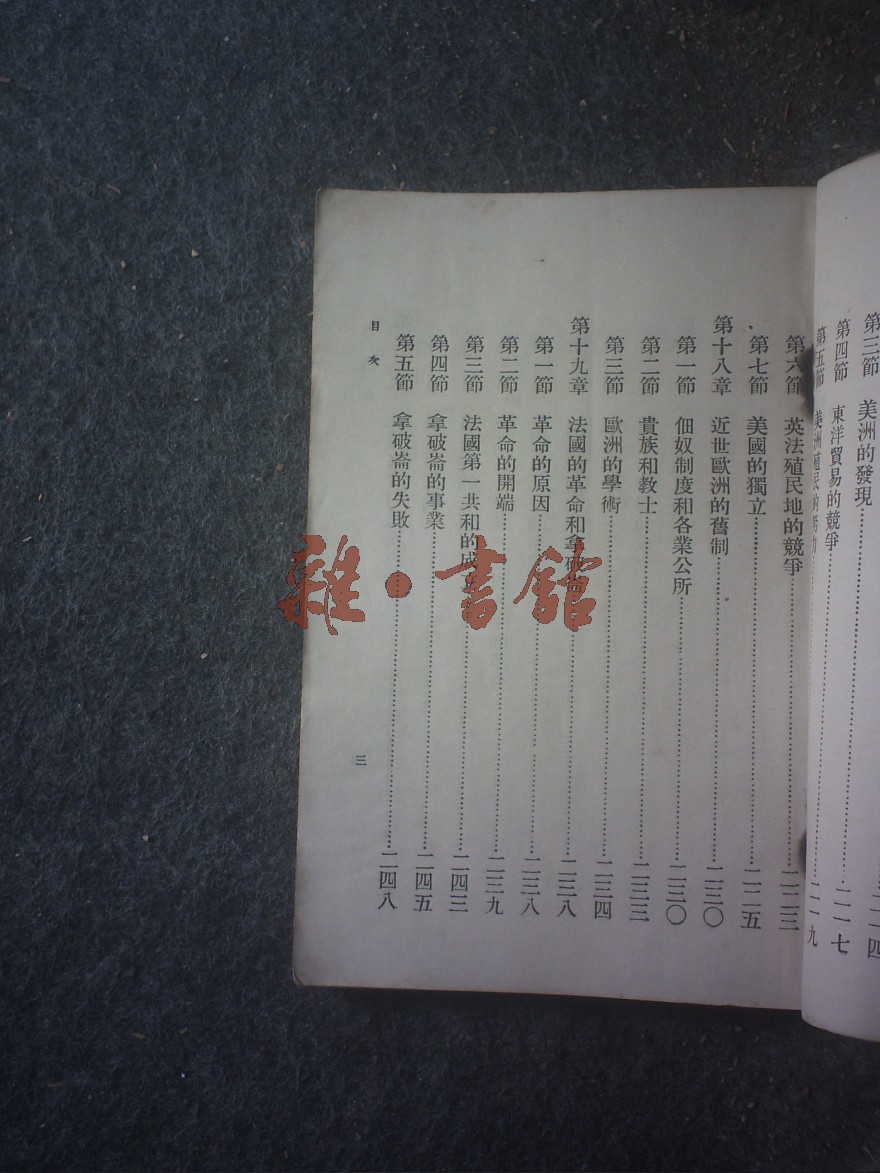 第三節 美洲的發現……二一四
第四節 東洋貿易的競爭……二一七
第五節 美洲殖民的努力……二一九
第六節 英法殖民地的競爭……二二三
第七節 美國的獨立……二二五
第十八章 近世歐洲的舊制……二三〇
第一節 佃奴制度和各業公所……二三〇
第二節 貴族和教士……二三三
第三節 歐洲的學術……二三四
第十九章 法國的革命和拿破崙……二三八
第一節 革命的原因……二三八
第二節 革命的開端……二三九
第三節 法國第一共和的成……二四三
第四節 拿破崙的事業……二四五
第五節 拿破崙的失敗……二四八
目次
三
雜·書館